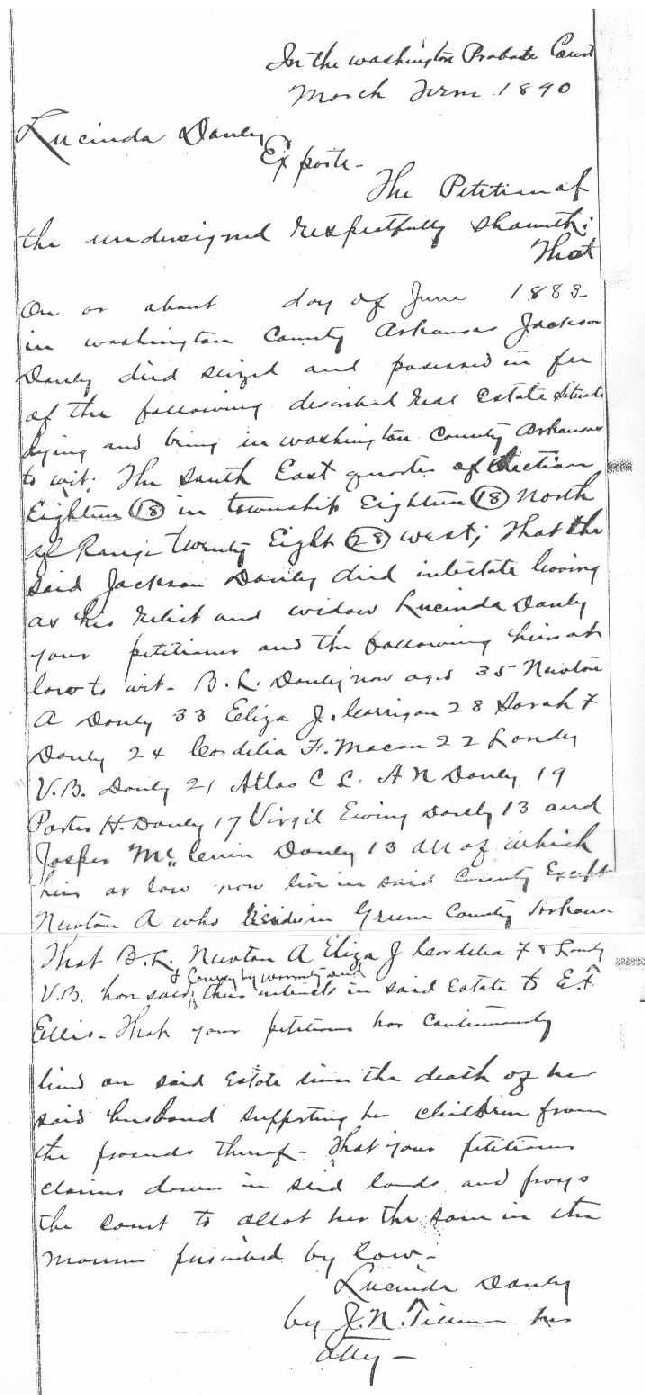 In the washington Probate Court
March Term 1890
Lucinda Danley
Ex parte -
The Petition of
the undersigned respectfully showeth:
That
On or about day of June 1883
in washington County Arkansas Jackson
Danley died seized and possessed in fee
of the following described real Estate Situate
lying and being in washington County Arkansas
to wit; The South East quarter of Section
Eighteen (18) in township Eighteen (18) North
of Range Twenty Eight (28) west; That the
said Jackson Danley died intestate leaving
as his relict and widow Lucinda Danley
your petitioner and the following heirs at
law to wit - B. L. Danley now aged 35 Newton
A Danley 33 Eliza J. Carrigan 28 Sarah F
Danley 24 Cordelia F. Macon 22 Landy
V.B. Danley 21 Atlas C L. A N Danley 19
Porter H. Danley 17 Virgil Ewing Danley 13 and
Jasper Danley 13 all of which
heirs at law now live in said County Except
Newton A who reside in Green County Arkansas
That B.L. Newton A Eliza J Cordelia F & Landy
& Convey by warranty deed
V.B. has sold their interests in said Estate to E.F.
Ellis - That your petitioner has continuously
lived on said Estate since the death of her
said husband supporting her children from
the proceeds thereof - That your petitioner
claims dower in said lands and prays
the court to allot her the same in the
manner prescribed by law -
Lucinda Danley
by J.N. Tillman her
atty -